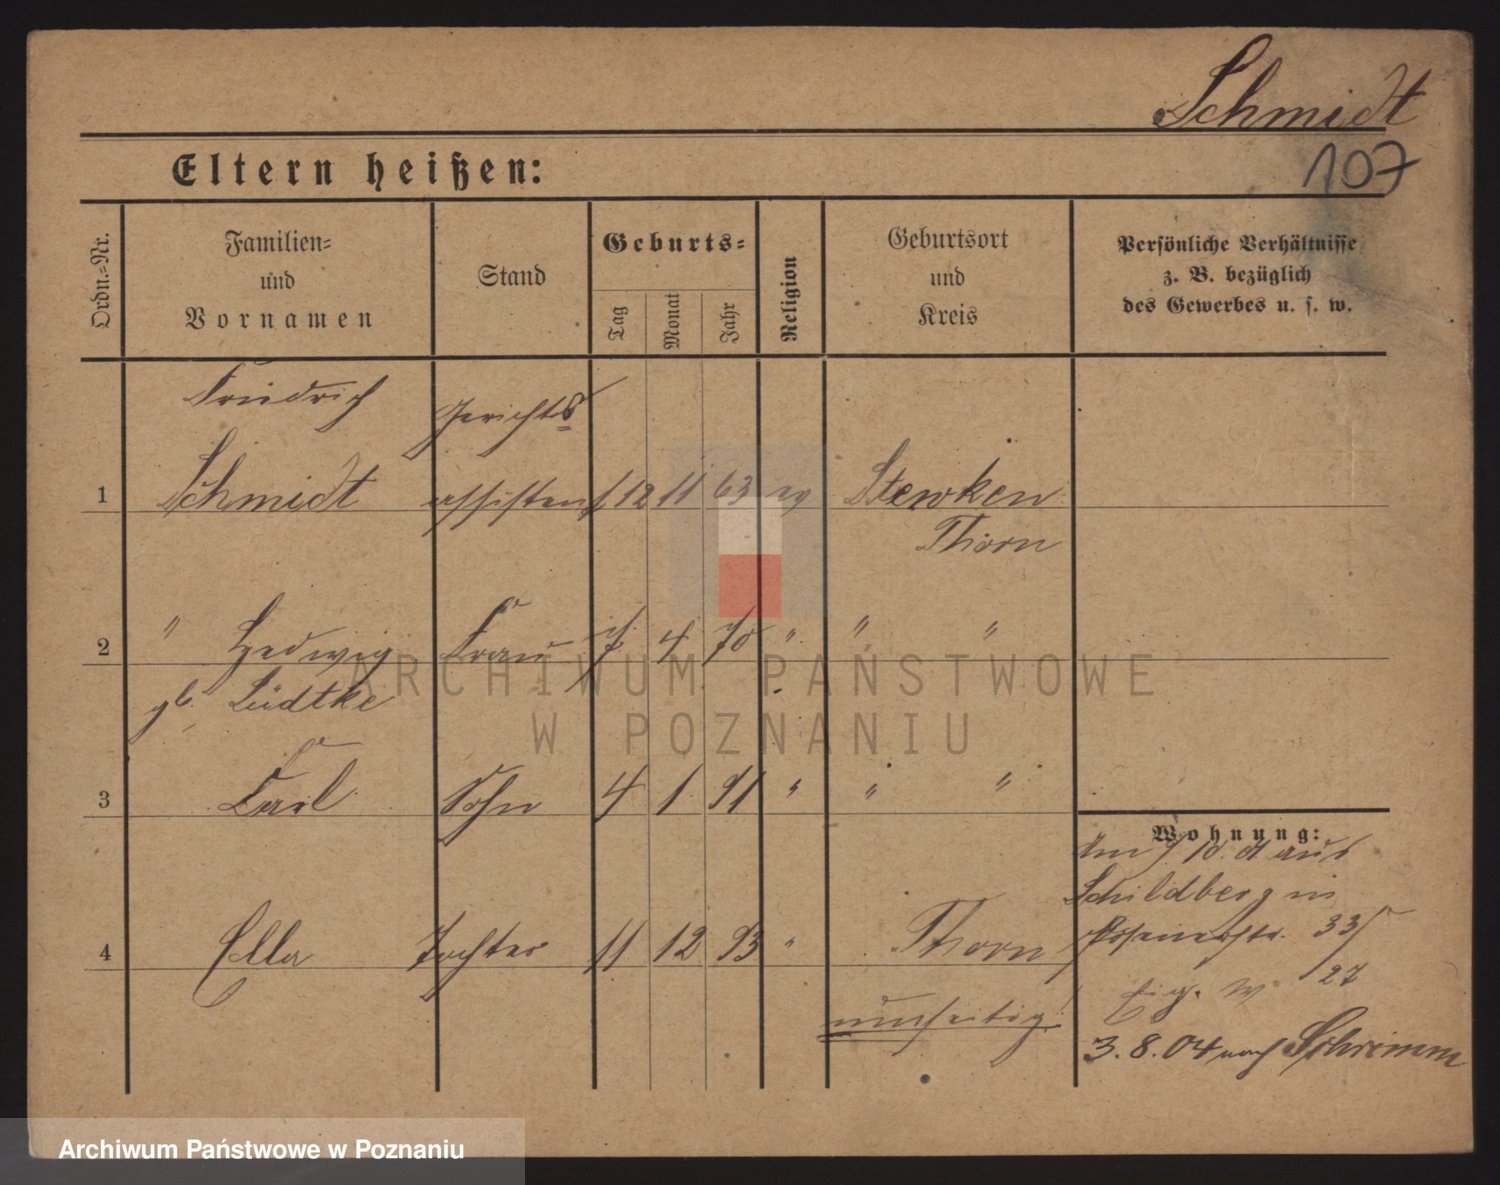 Schmidt
107
Eltern heißen:
Ordn.-Nr.
Familien-
und
Vornamen
Stand
Geburts-
Tag
Monat
Jahr
Religion
Geburtsort
und
Kreis
Persönliche Verhältnisse
z. B. bezüglich
des Gewerbes u. s. w.
Friedrich Gerichts
1 Schmidt assistent 12 11 63 ev Stewken
Thorn
2 " Hedwig Frau 7 4 70 " " "
gb. Lüdtke
3 Carl Sohn 4 1 91 " " "
Wohnung:
10. aus
Schildberg in
4 Ella Tochter 11 12 93 " Thorn
Posenerstr. 33
Eig. W 27
umseitig!
3.8.04 nach Schrimm
ARCHIWUM PAŃSTWOWE
W POZNANIU
Archiwum Państwowe w Poznaniu